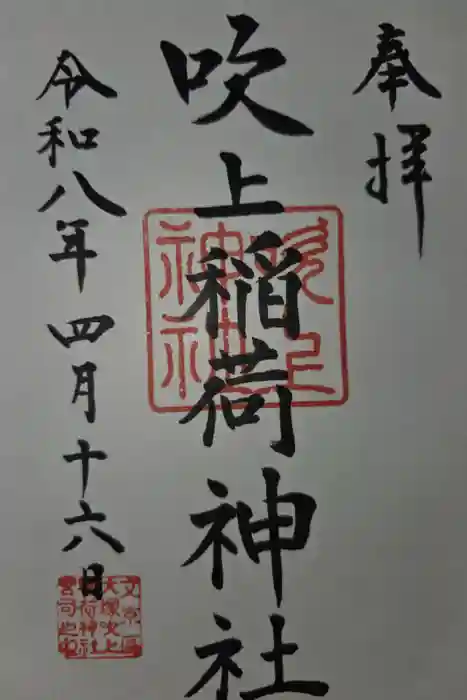 奉拝
吹上稲荷神社
令和八年四月十六日
吹上
神社